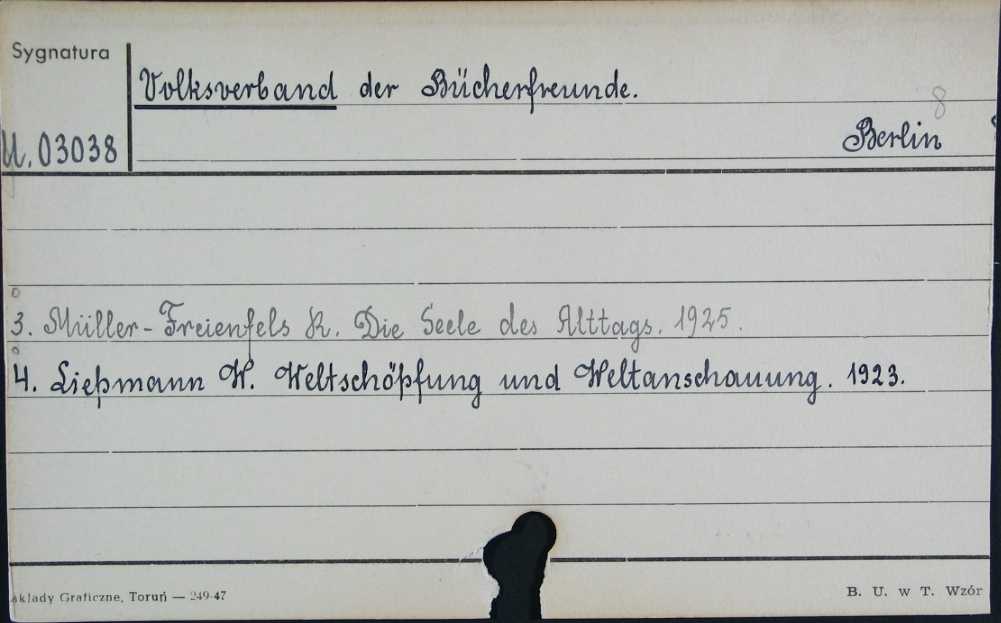 Sygnatura
Volksverband der Bücherfreunde.
8
Berlin
U. 03038
3. Müller-Freienfels R. Die Seele des Alttags. 1925.
4. Ließmann W. Weltschöpfung und Weltanschauung. 1923.
akłady Graficzne, Toruń — 249-47
B. U. w T. Wzór